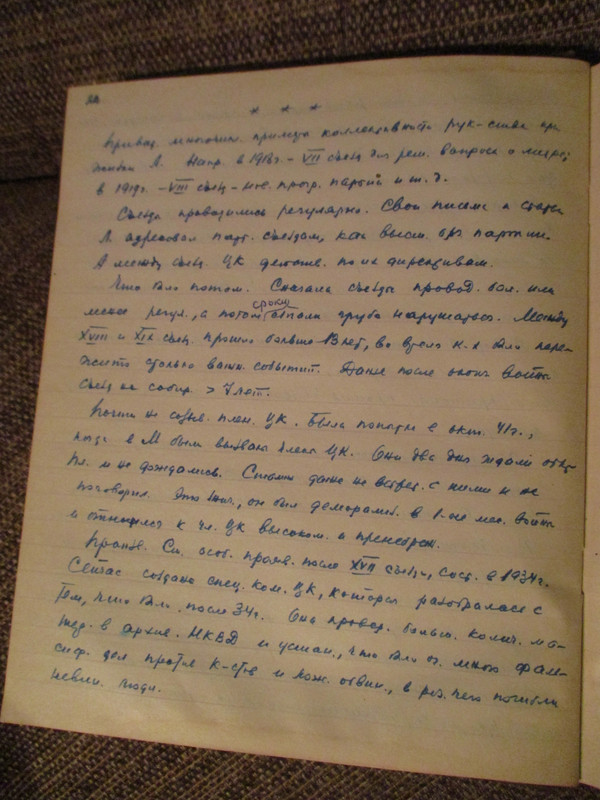 * * *
Привод. многочисл. примеры коллективности рук-ства при
жизни Л. Напр. в 1918г. – VII съезд для реш. вопроса о мире;
в 1919г. – VIII съезд – нов. прогр. партии и т. д.
Съезды проводились регулярно. Свои письма и статьи
Л. адресовал парт. съездам, как высш. орг. партии.
А между съезд. ЦК действ. по их директивам.
Что было потом. Сначала съезды провод. бол. или
менее регул., а потом сроки стали грубо нарушаться. Между
XVIII и XIX съезд. прошло больше 13 лет, во время к-х было пере-
жито столько важн. событий. Даже после оконч. войны
съезд не собир. > 7 лет.
Почти не созыв. плен. ЦК. Была попытка в окт. 41г.,
когда в М были вызваны члены ЦК. Они два дня ждали откр.
пл. и не дождались. Сталин даже не встрет. с ними и не
поговорил. Это знач., он был деморализ. в 1-ые мес. войны
и относился к чл. ЦК высоком. и пренебреж.
Произв. Ст. особ. прояв. после XVII съезда, сост. в 1934г.
Сейчас создана спец. ком. ЦК, которая разобралась с
тем, что было после 34г. Она провер. больш. колич. ма-
тер. в архив. НКВД и устан., что было оч. много фаль-
сиф. дел против к-стов и лож. обвин., в рез. чего погибли
невин. люди.